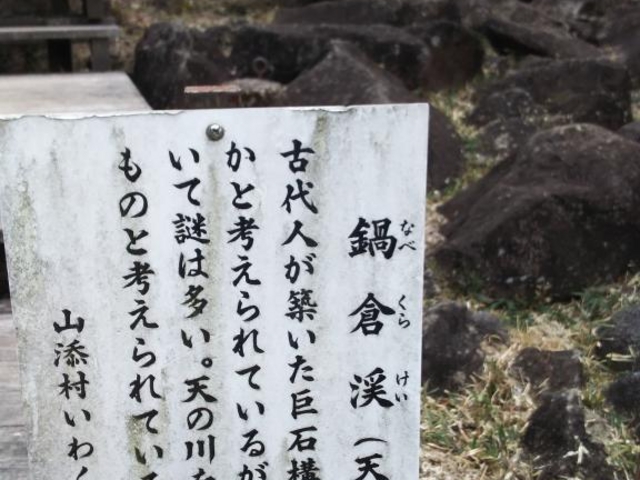 鍋倉渓（天
なべくらけい
古代人が築いた巨石構
かと考えられているが
いて謎は多い。天の川を
ものと考えられている
山添村いわく